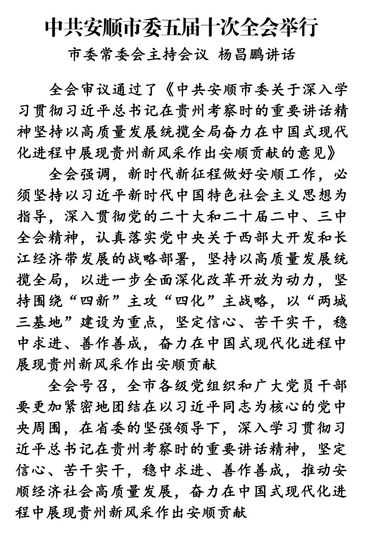 中共安顺市委五届十次全会举行
市委常委会主持会议 杨昌鹏讲话
全会审议通过了《中共安顺市委关于深入学
习贯彻习近平总书记在贵州考察时的重要讲话精
神坚持以高质量发展统揽全局奋力在中国式现代
化进程中展现贵州新风采作出安顺贡献的意见》
全会强调，新时代新征程做好安顺工作，必
须坚持以习近平新时代中国特色社会主义思想为
指导，深入贯彻党的二十大和二十届二中、三中
全会精神，认真落实党中央关于西部大开发和长
江经济带发展的战略部署，坚持以高质量发展统
揽全局，以进一步全面深化改革开放为动力，坚
持围绕“四新”主攻“四化”主战略，以“两城
三基地”建设为重点，坚定信心、苦干实干，稳
中求进、善作善成，奋力在中国式现代化进程中
展现贵州新风采作出安顺贡献
全会号召，全市各级党组织和广大党员干部
要更加紧密地团结在以习近平同志为核心的党中
央周围，在省委的坚强领导下，深入学习贯彻习
近平总书记在贵州考察时的重要讲话精神，坚定
信心、苦干实干，稳中求进、善作善成，推动安
顺经济社会高质量发展，奋力在中国式现代化进
程中展现贵州新风采作出安顺贡献